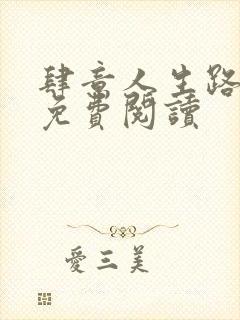 肆意人生路
免費閱讀
愛三美